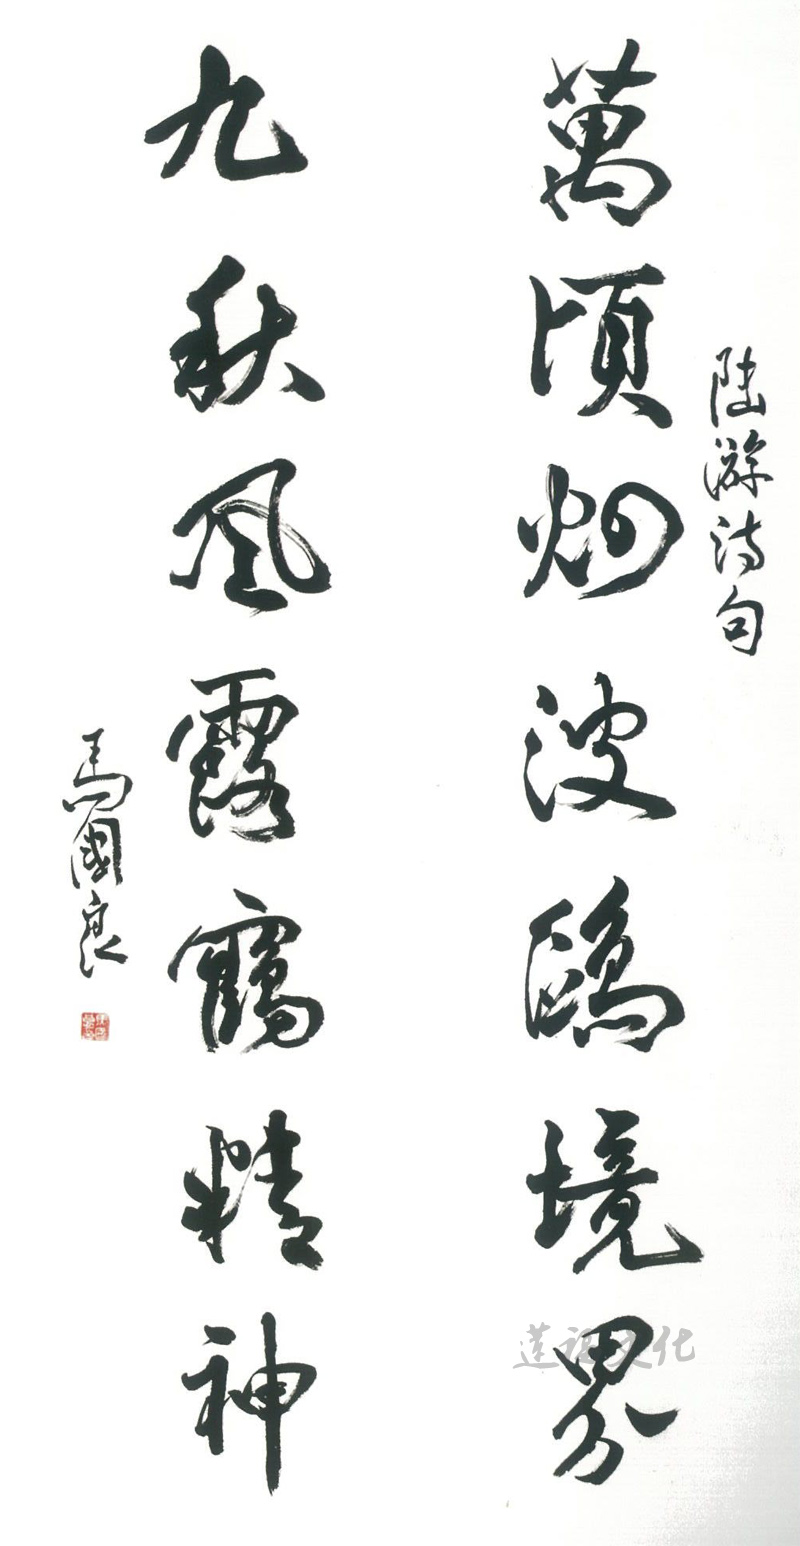 陆游诗句
萬頃烟波鷗境界
九秋風露鶴精神
馬國良